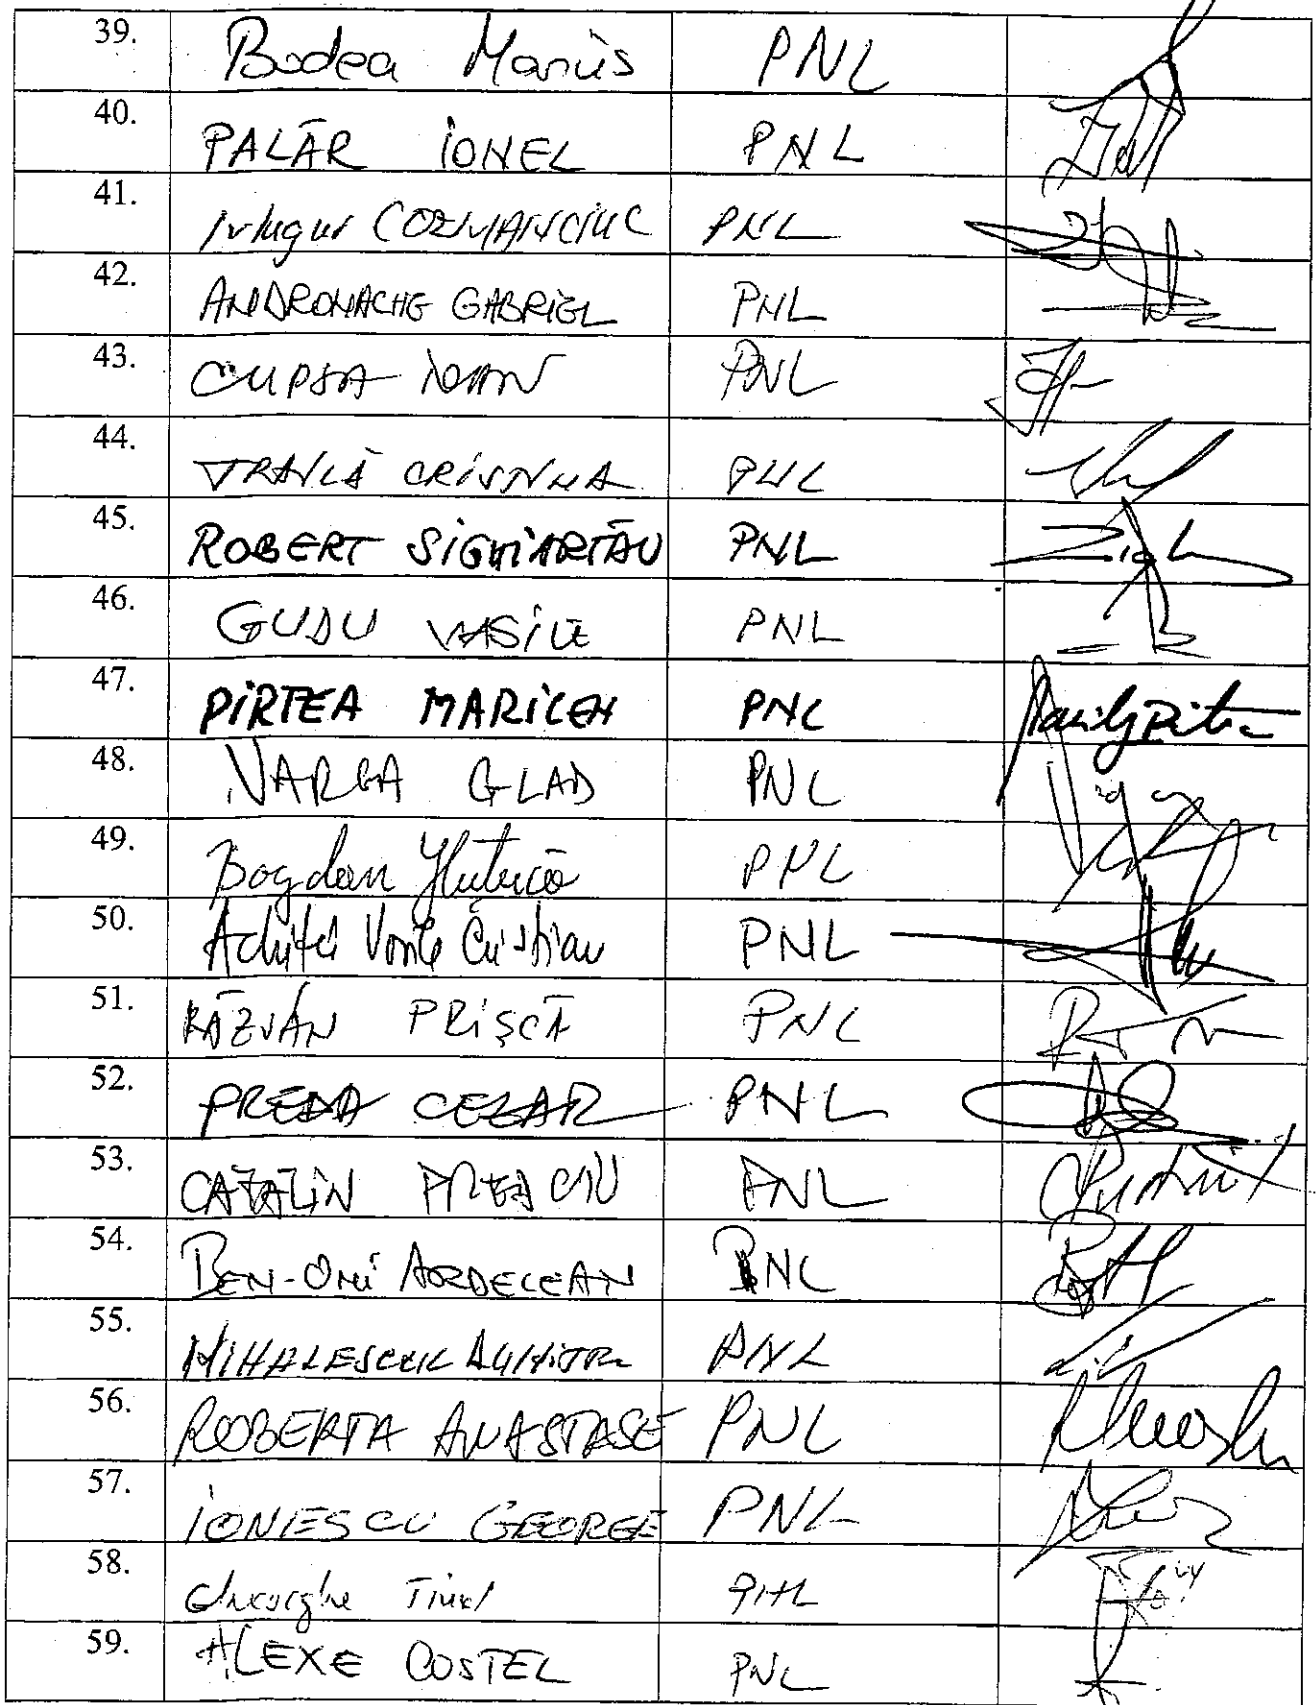 39. Bodea Marius PNL
40. PALĂR IONEL PNL
41. Mugur COZMANCIUC PNL
42. ANDRONACHE GABRIEL PNL
43. CUPȘA IOAN PNL
44. TRĂILĂ CRISTINA PNL
45. ROBERT SIGHIARTĂU PNL
46. GUDU VASILE PNL
47. PIRTEA MARILEN PNL
48. VARGA GLAD PNL
49. Bogdan Huțucă PNL
50. Achiței Vasile Cristian PNL
51. RĂZVAN PRIȘCĂ PNL
52. PREDA CEZAR PNL
53. CĂTĂLIN PREDA PNL
54. BEN-ONI ARDELEAN PNL
55. MIHALESCUL DUMITRU PNL
56. ROBERTA ANASTASE PNL
57. IONESCU GEORGE PNL
58. Gheorghe Tinel PNL
59. ALEXE COSTEL PNL